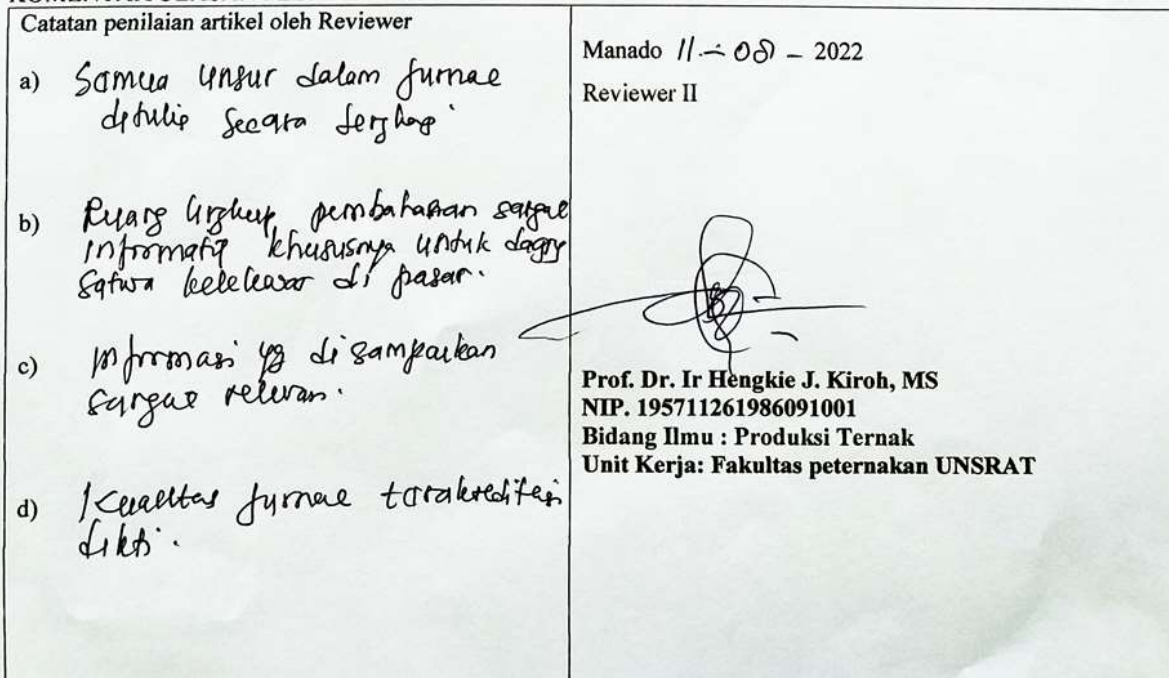 Catatan penilaian artikel oleh Reviewer
a) Semua unsur dalam jurnal
ditulis secara lengkap
b) Ruang lingkup pembahasan sangat
informatif khususnya untuk daging
satwa kelelawar di pasar.
c) Informasi yg disampaikan
sangat relevan.
d) Kualitas jurnal terakreditasi
dikti.
Manado 11 - 08 - 2022
Reviewer II
Prof. Dr. Ir Hengkie J. Kiroh, MS
NIP. 195711261986091001
Bidang Ilmu : Produksi Ternak
Unit Kerja: Fakultas peternakan UNSRAT